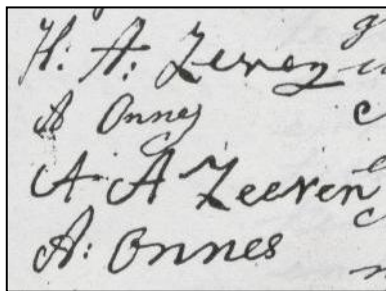 H: A: Zeven
A Onnes
A A Zeeven
A: Onnes